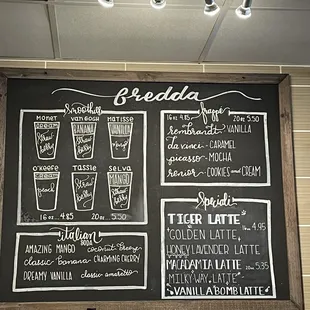 Gredda
Smoothies
MONET
VAN GOGH
MATISSE
BANANA
VANILLA
STRAW
BERRY
O'KEEFE
TASSIE
SELVA
PEACH
STRAW
BERRY
16 oz 4.85 20 oz 5.50
Italian
SODA
AMAZING MANGO
classic banana CHARMING CHERRY
DREAMY VANILLA classic amaretto
frappe
16 oz 4.95 20 oz 5.50
rembrandt: VANILLA
da vinci - CARAMEL
picasso - MOCHA
renior - COOKIES and CREAM
TIGER LATTE
4.95
GOLDEN LATTE
HONEY LAVENDER LATTE
MACADAMIA LATTE 5.35
MILKY WAY LATTE
VANILLA BOMB LATTE